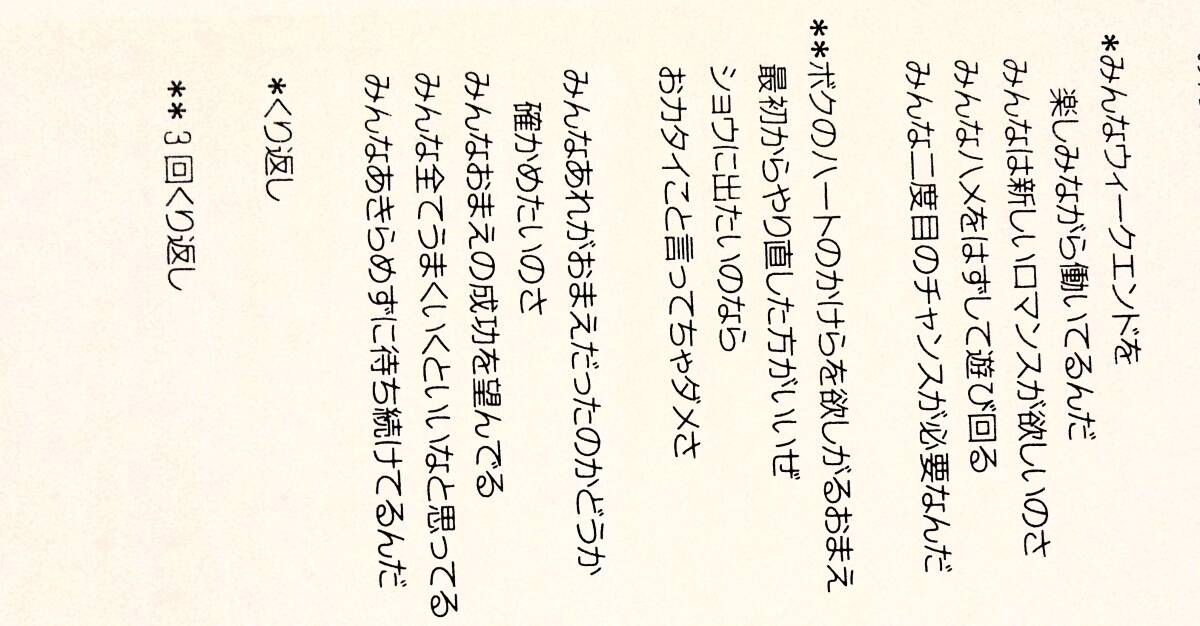 *みんなウィークエンドを
楽しみながら働いてるんだ
みんなは新しいロマンスが欲しいのさ
みんなハメをはずして遊び回る
みんな二度目のチャンスが必要なんだ
**ボクのハートのかけらを欲しがるおまえ
最初からやり直した方がいいぜ
ショウに出たいのなら
おカタイこと言ってちゃダメさ
みんなあれがおまえだったのかどうか
確かめたいのさ
みんなおまえの成功を望んでる
みんな全てうまくいくといいなと思ってる
みんなあきらめずに待ち続けてるんだ
*くり返し
**3回くり返し